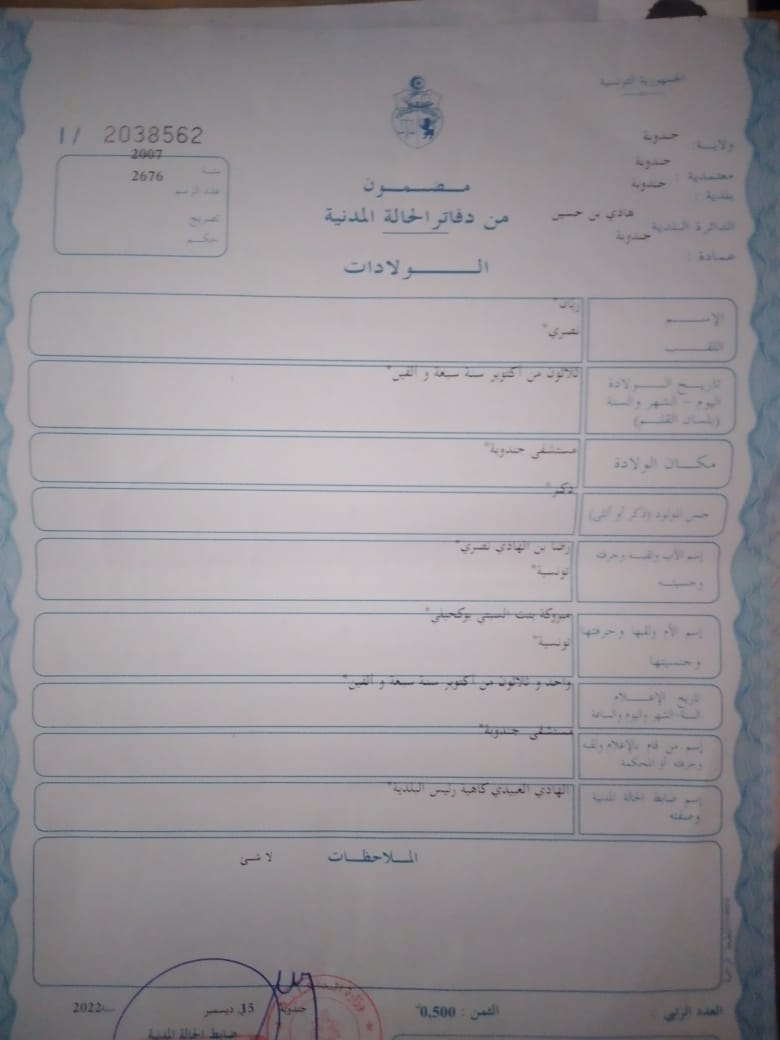 الجمهورية التونسية
ولاية: جندوبة
معتمدية: جندوبة
بلدية: جندوبة
الدائرة البلدية هادي بن حسين
عمادة: جندوبة
I/ 2038562
سنة 2007
عدد الرسم 2676
تصريح
حكم
مضمون
من دفاتر الحالة المدنية
الولادات
الإسم ريان*
اللقب نصري*
تاريخ الولادة ثلاثون من أكتوبر سنة سبعة و ألفين*
اليوم - الشهر والسنة
(بلسان القلم)
مكان الولادة مستشفى جندوبة*
جنس المولود (ذكر أو أنثى) ذكر*
إسم الأب ولقبه وحرفته رضا بن الهادي نصري*
وجنسيته تونسية*
إسم الأم ولقبها وحرفتها مبروكة بنت السبتي بوكحيلي*
وجنسيتها تونسية*
تاريخ الإعلام واحد و ثلاثون من أكتوبر سنة سبعة و ألفين*
السنة-الشهر واليوم والساعة
إسم من قام بالإعلام ولقبه مستشفى جندوبة*
وحرفته أو المحكمة
إسم ضابط الحالة المدنية الهادي العبيدي كاهية رئيس البلدية*
وصفته
الملاحظات لا شئ
العدد الرتبي : الثمن : 0,500 جندوبة 15 ديسمبر 2022
ضابط الحالة المدنية